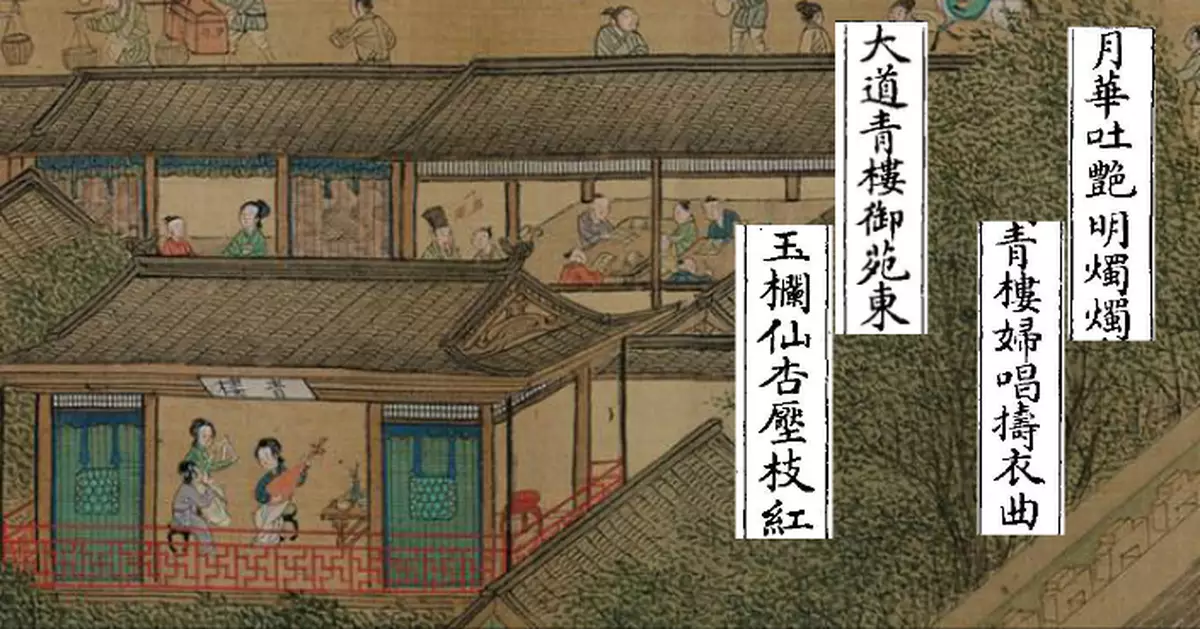 月華吐艷明燭燭
青樓婦唱擣衣曲
大道青樓御苑東
玉欄仙杏壓枝紅
青樓